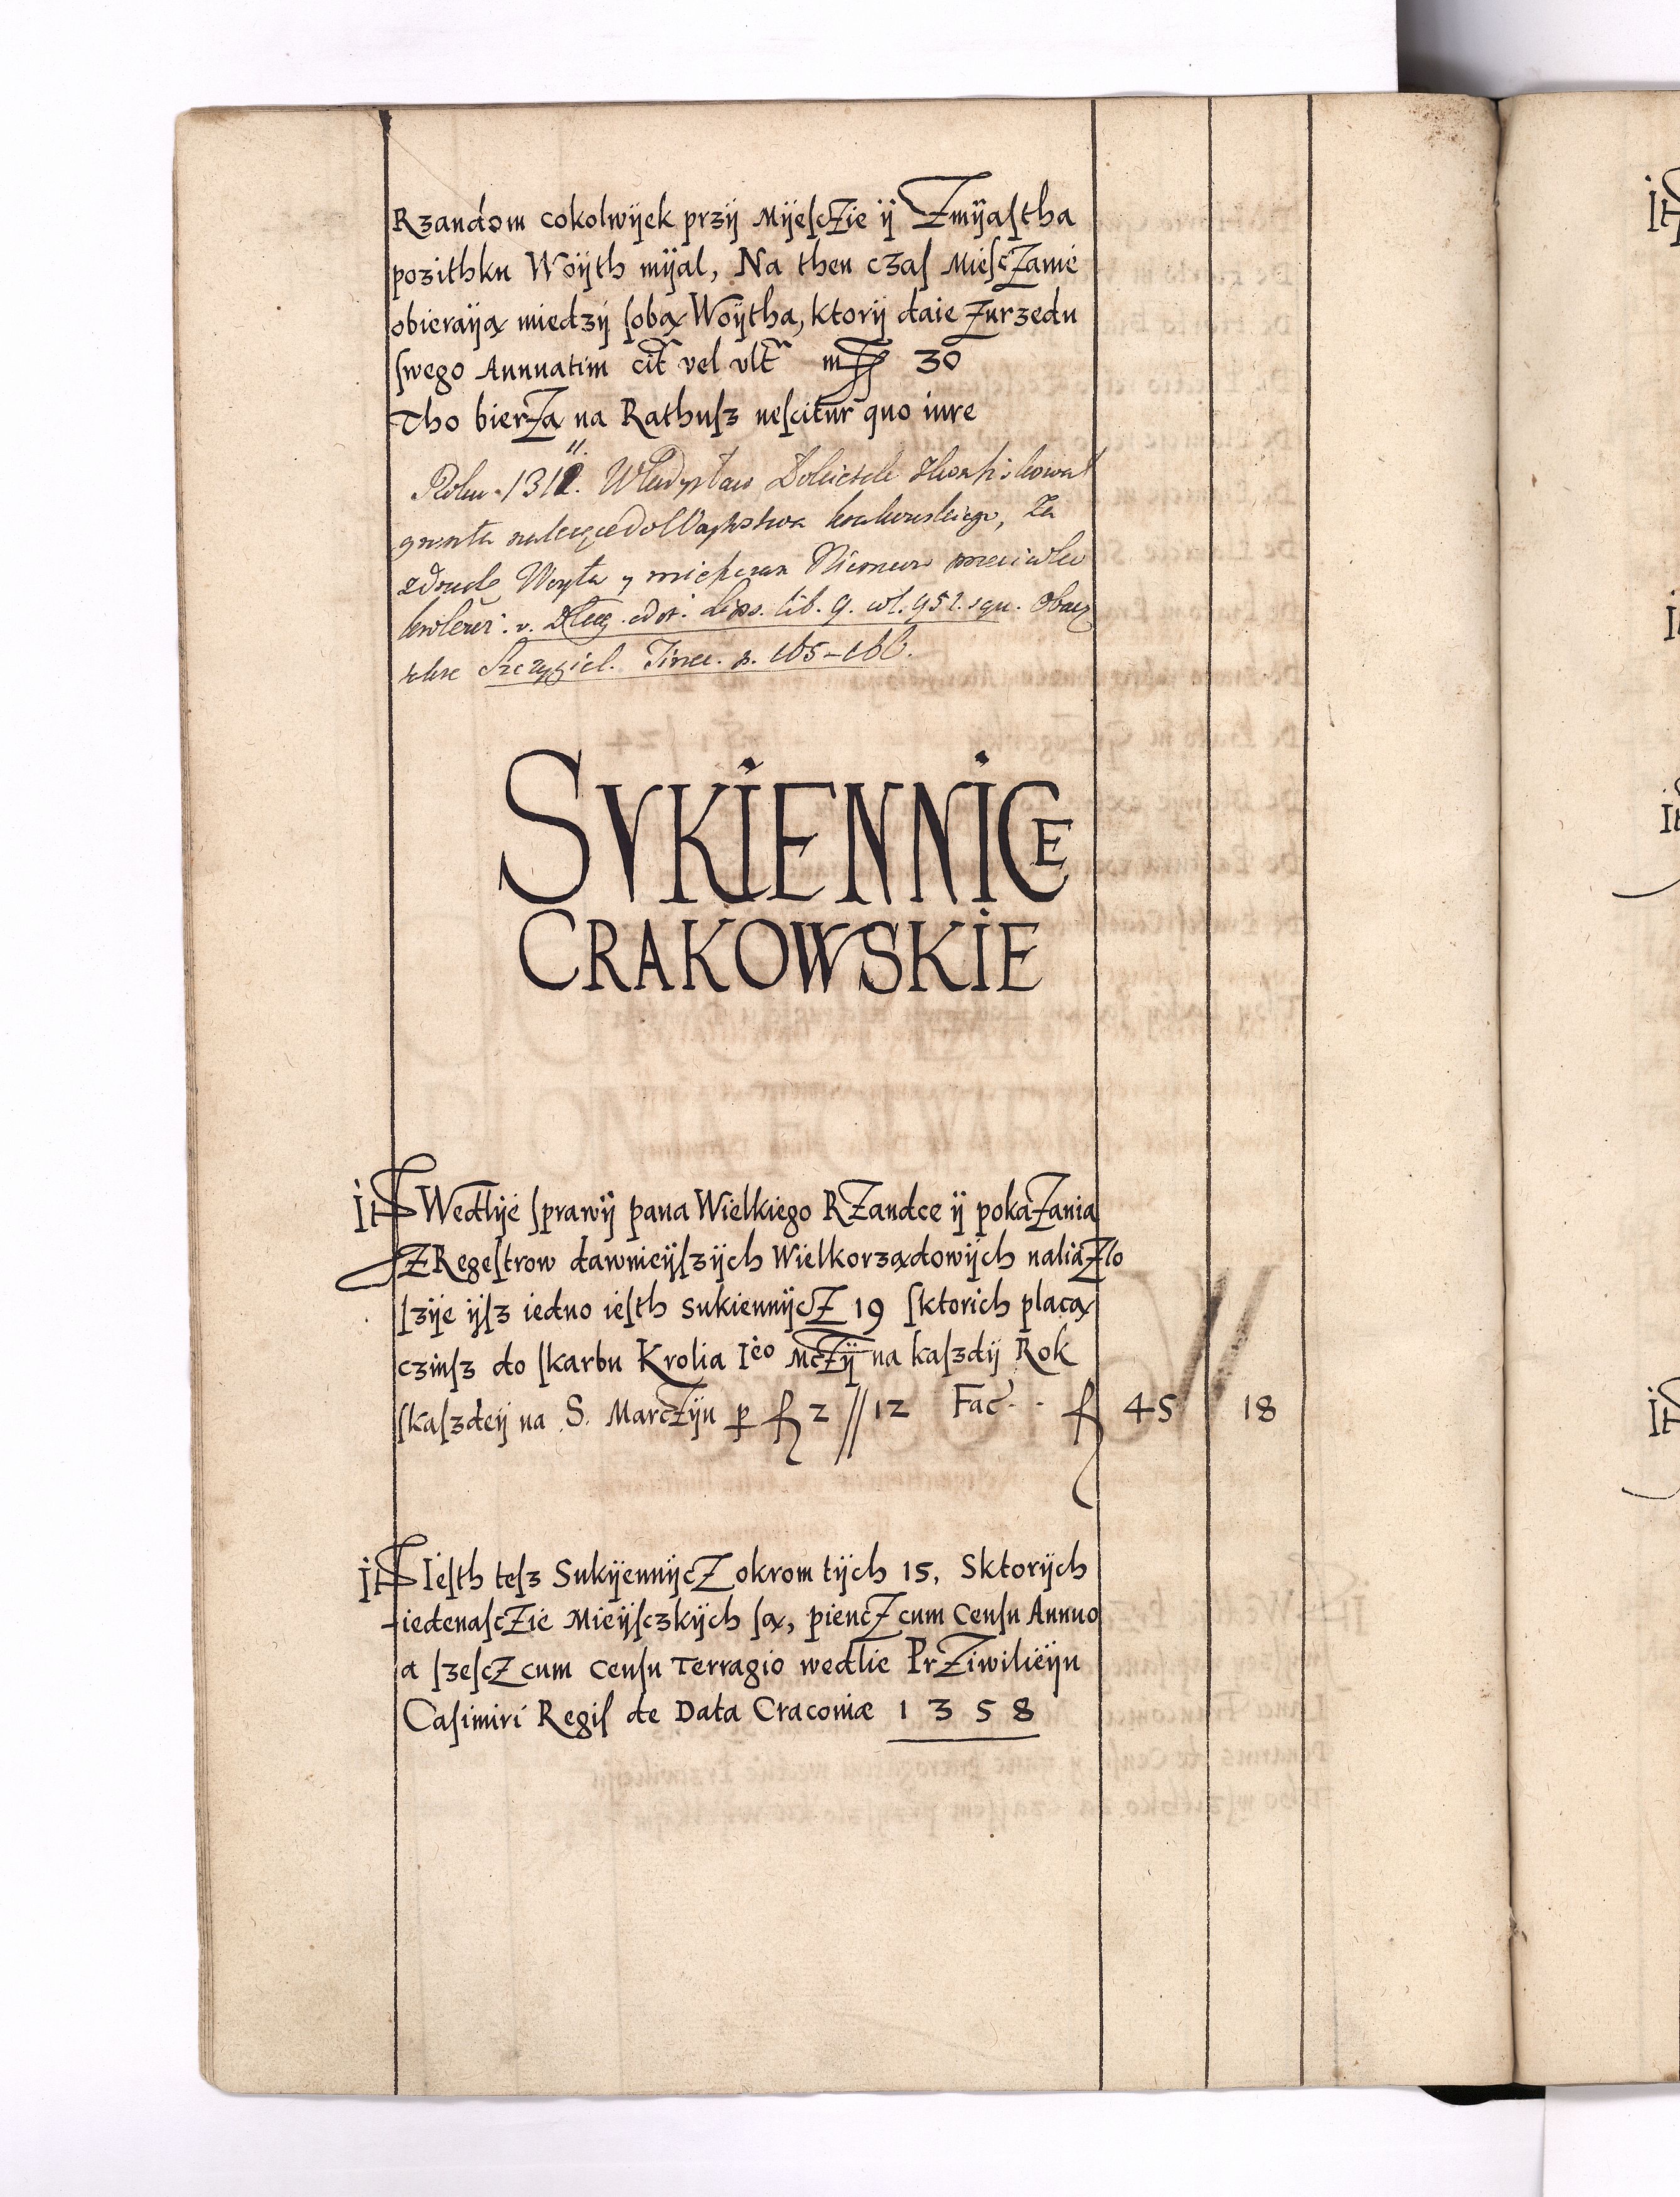 Rzandom cokolwÿek przÿ Mÿeſcżie ÿ Zmÿaſtha
pozithku Woÿth mÿal, Na then czaſ Mieſcżanie
obieraÿą miedzÿ ſobą Woÿtha, ktorÿ daie Zurzedu
ſwego Annuatim cit vel vlt m 30
Tho bierZą na Rathuſz neſcitur quo iure
Roku 1311. Władysław Łokietek
grunta należące do Woytostwa krakowskiego, za
zdradę Woyta y
v. Dług. edit. Lips. lib. 9. col. 951. squ. Obacz
także Szczygiel. Tinec. p. 165–166.
SVKIENNICE
CRAKOWSKIE
It Wedlÿe ſprawÿ pana Wielkiego RZandce ÿ pokaZania
Z Regeſtrow dawnieÿſzÿch Wielkorządowÿch naliaZlo
ſzÿe ÿſz iedno ieſth sukiennÿcZ 19 ſktorich placą
czinſz do ſkarbu Krolia Ieo MczÿZ na kaſzdÿ Rok
ſkaſzdeÿ na S. MarcZÿn p fl 2 // 12 Fac. . fl 45 18
It Ieſth teſz SukÿennÿcZ okrom tÿch 15, Sktorÿch
iedenaſcZie Mieÿſczkÿch ſą, piencZ cum Cenſu Annuo
a ſzeſcZ cum Cenſu Terragio wedlie PrZiwilieÿu
Caſimiri Regiſ de Data Cracoviæ 1358